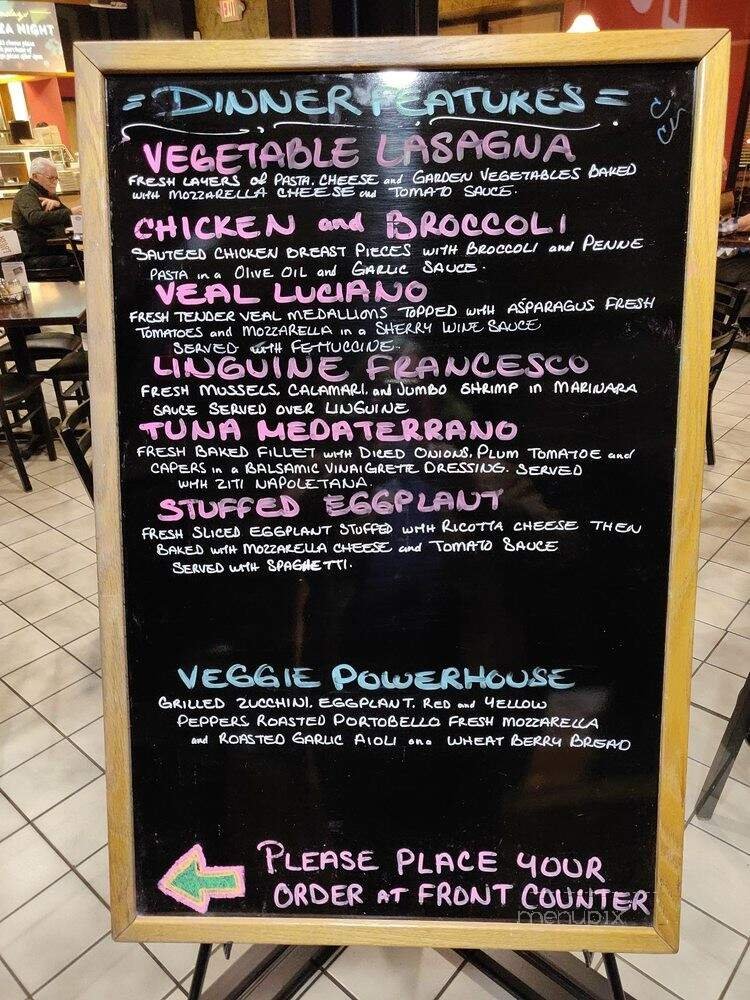 EXIT
RA NIGHT
= DINNER FEATURES =
VEGETABLE LASAGNA
FRESH LAYERS of PASTA, CHEESE and GARDEN VEGETABLES BAKED
WITH MOZZARELLA CHEESE and TOMATO SAUCE.
CHICKEN and BROCCOLI
SAUTEED CHICKEN BREAST PIECES WITH BROCCOLI and PENNE
PASTA in a OLIVE OIL and GARLIC SAUCE.
VEAL LUCIANO
FRESH TENDER VEAL MEDALLIONS TOPPED WITH ASPARAGUS FRESH
TOMATOES and MOZZARELLA in a SHERRY WINE SAUCE
SERVED WITH FETTUCCINE.
LINGUINE FRANCESCO
FRESH MUSSELS, CALAMARI, and JUMBO SHRIMP in MARINARA
SAUCE SERVED OVER LINGUINE
TUNA MEDATERRANO
FRESH BAKED FILLET WITH DICED ONIONS, PLUM TOMATOE and
CAPERS in a BALSAMIC VINAIGRETE DRESSING. SERVED
WITH ZITI NAPOLETANA.
STUFFED EGGPLANT
FRESH SLICED EGGPLANT STUFFED WITH RICOTTA CHEESE THEN
BAKED WITH MOZZARELLA CHEESE and TOMATO SAUCE
SERVED WITH SPAGHETTI.
VEGGIE POWERHOUSE
GRILLED ZUCCHINI, EGGPLANT, RED and YELLOW
PEPPERS, ROASTED PORTOBELLO, FRESH MOZZARELLA
and ROASTED GARLIC AIOLI on a WHEAT BERRY BREAD
PLEASE PLACE YOUR
ORDER AT FRONT COUNTER
menupix